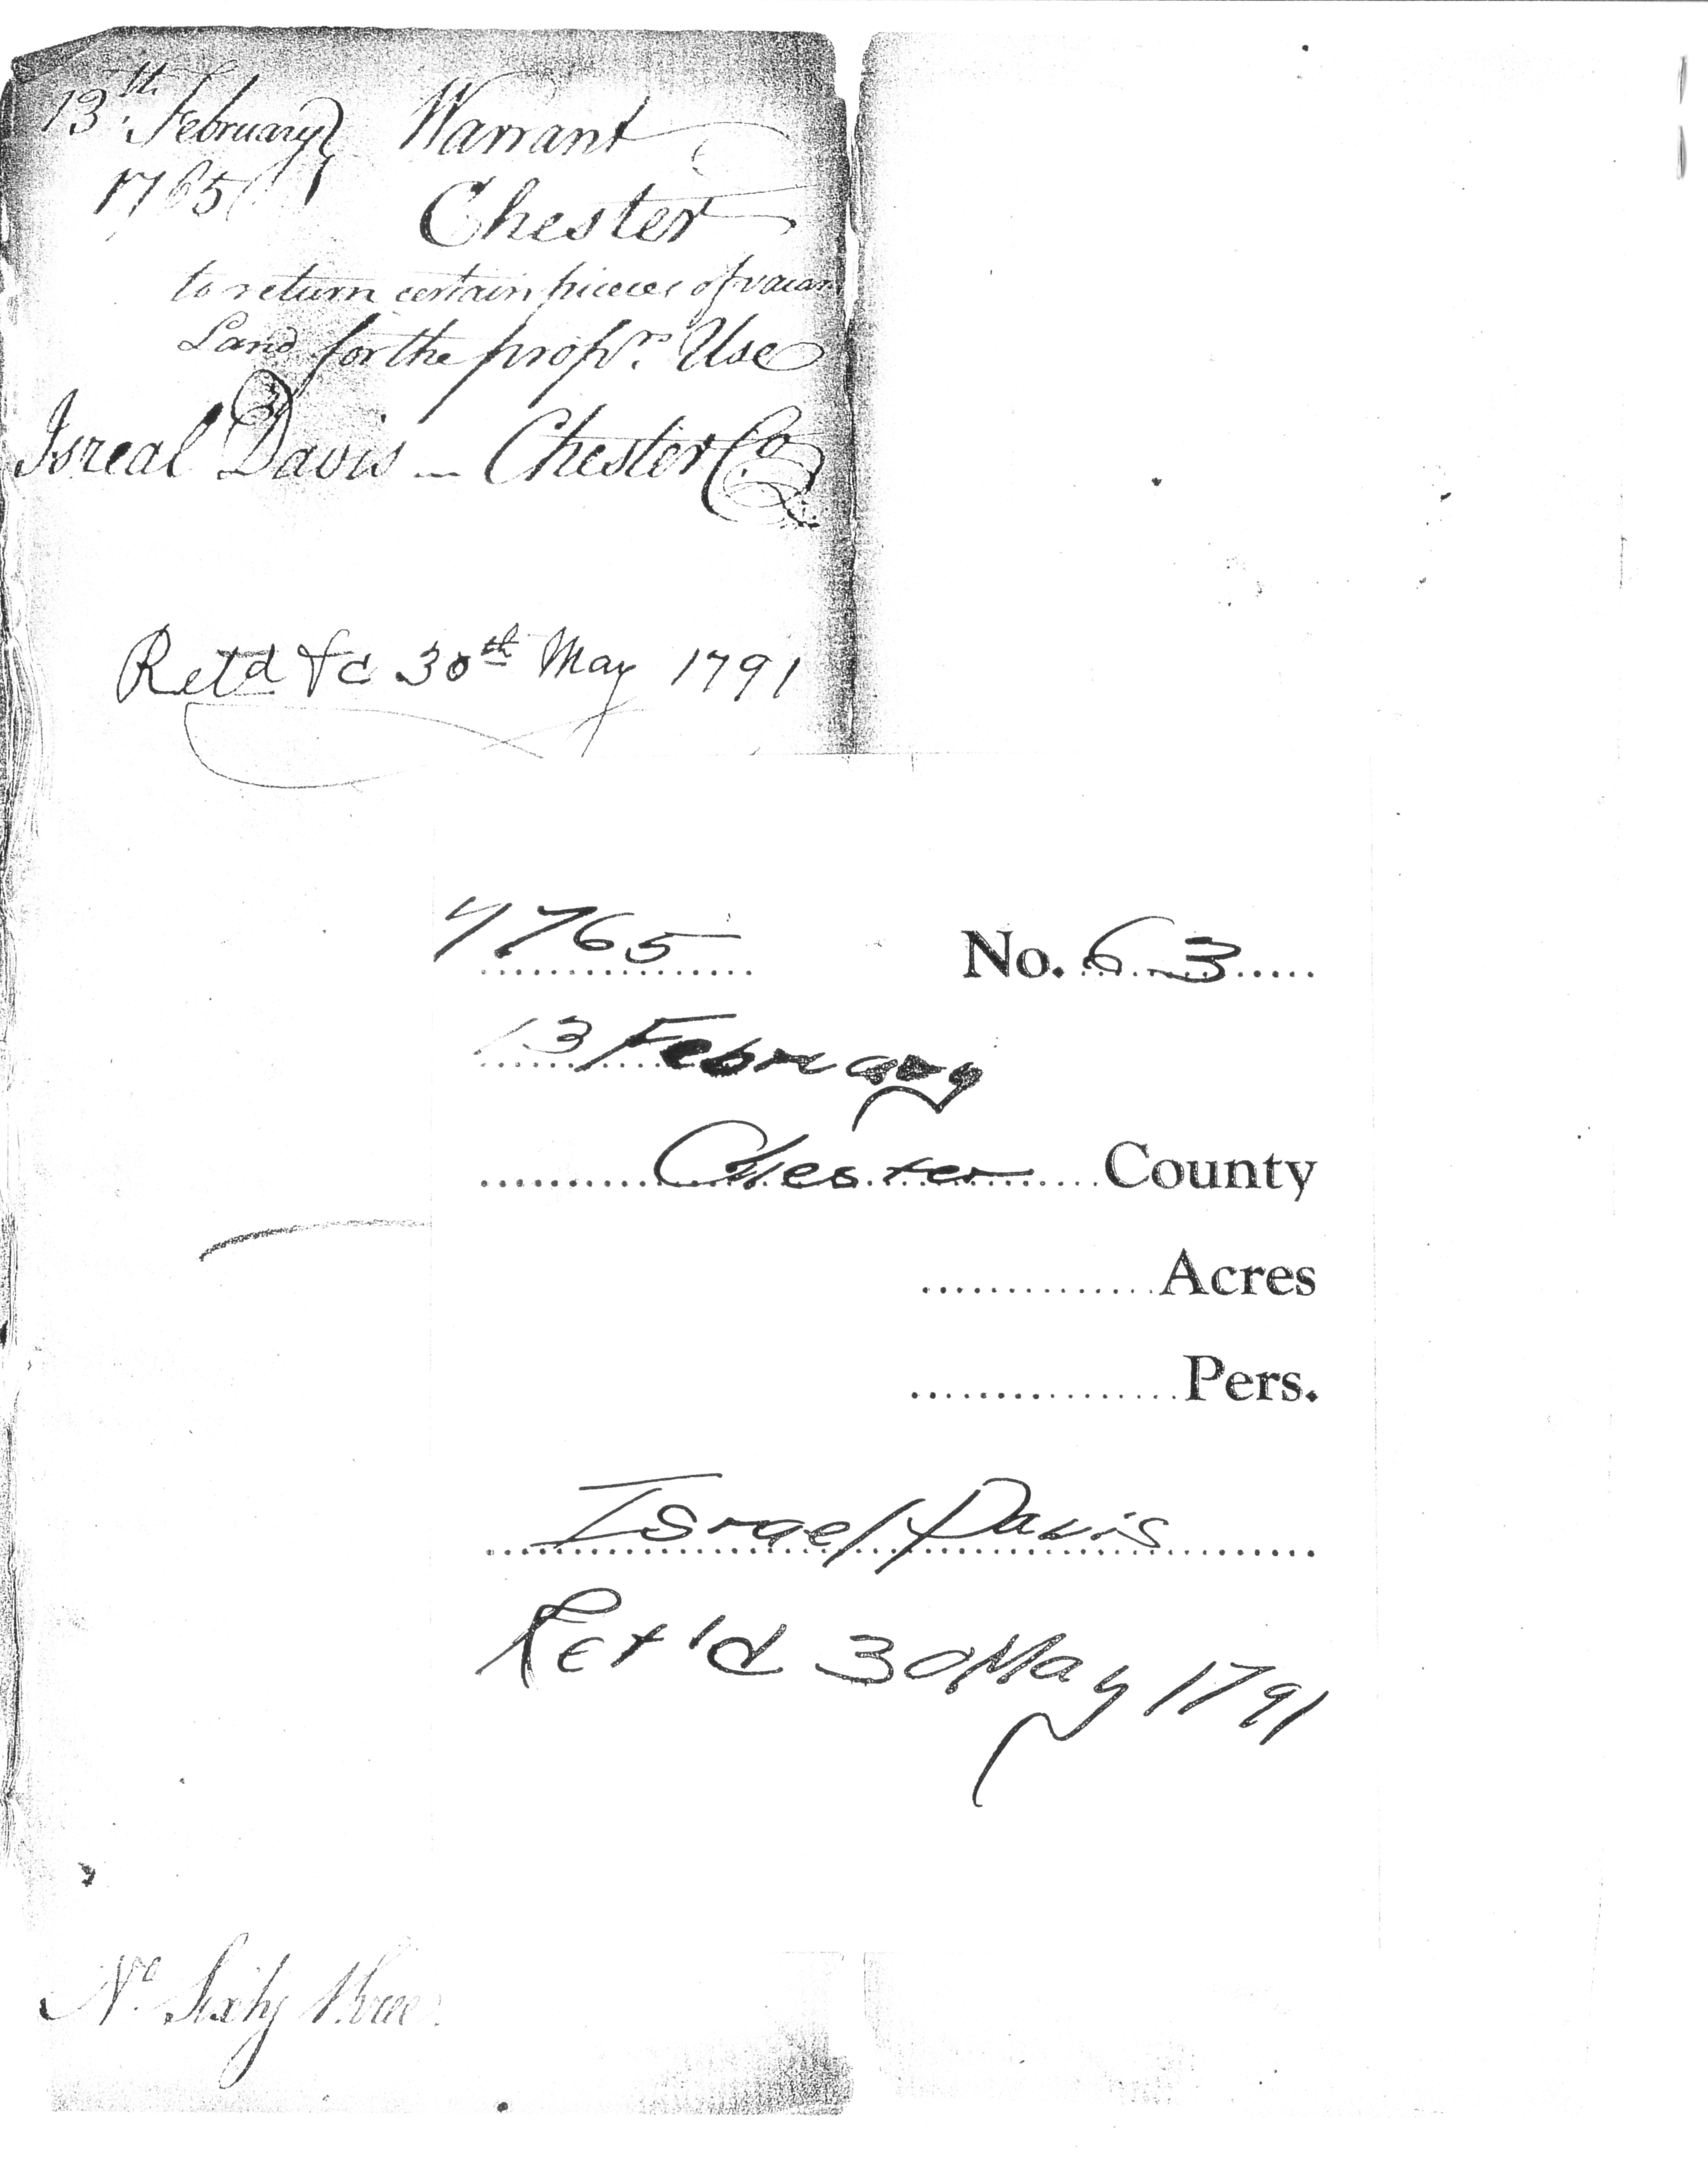 13th February Warrant
1765 Chester
to return certain pieces of vacan
Land for the propʳˢ. Use
Isreal Davis — Chester Co
Retd &c 30th May 1791
1765 No. 63
13 February
Chester County
Acres
Pers.
Israel Davis
Ret'd 30 May 1791
Nº. Sixty three